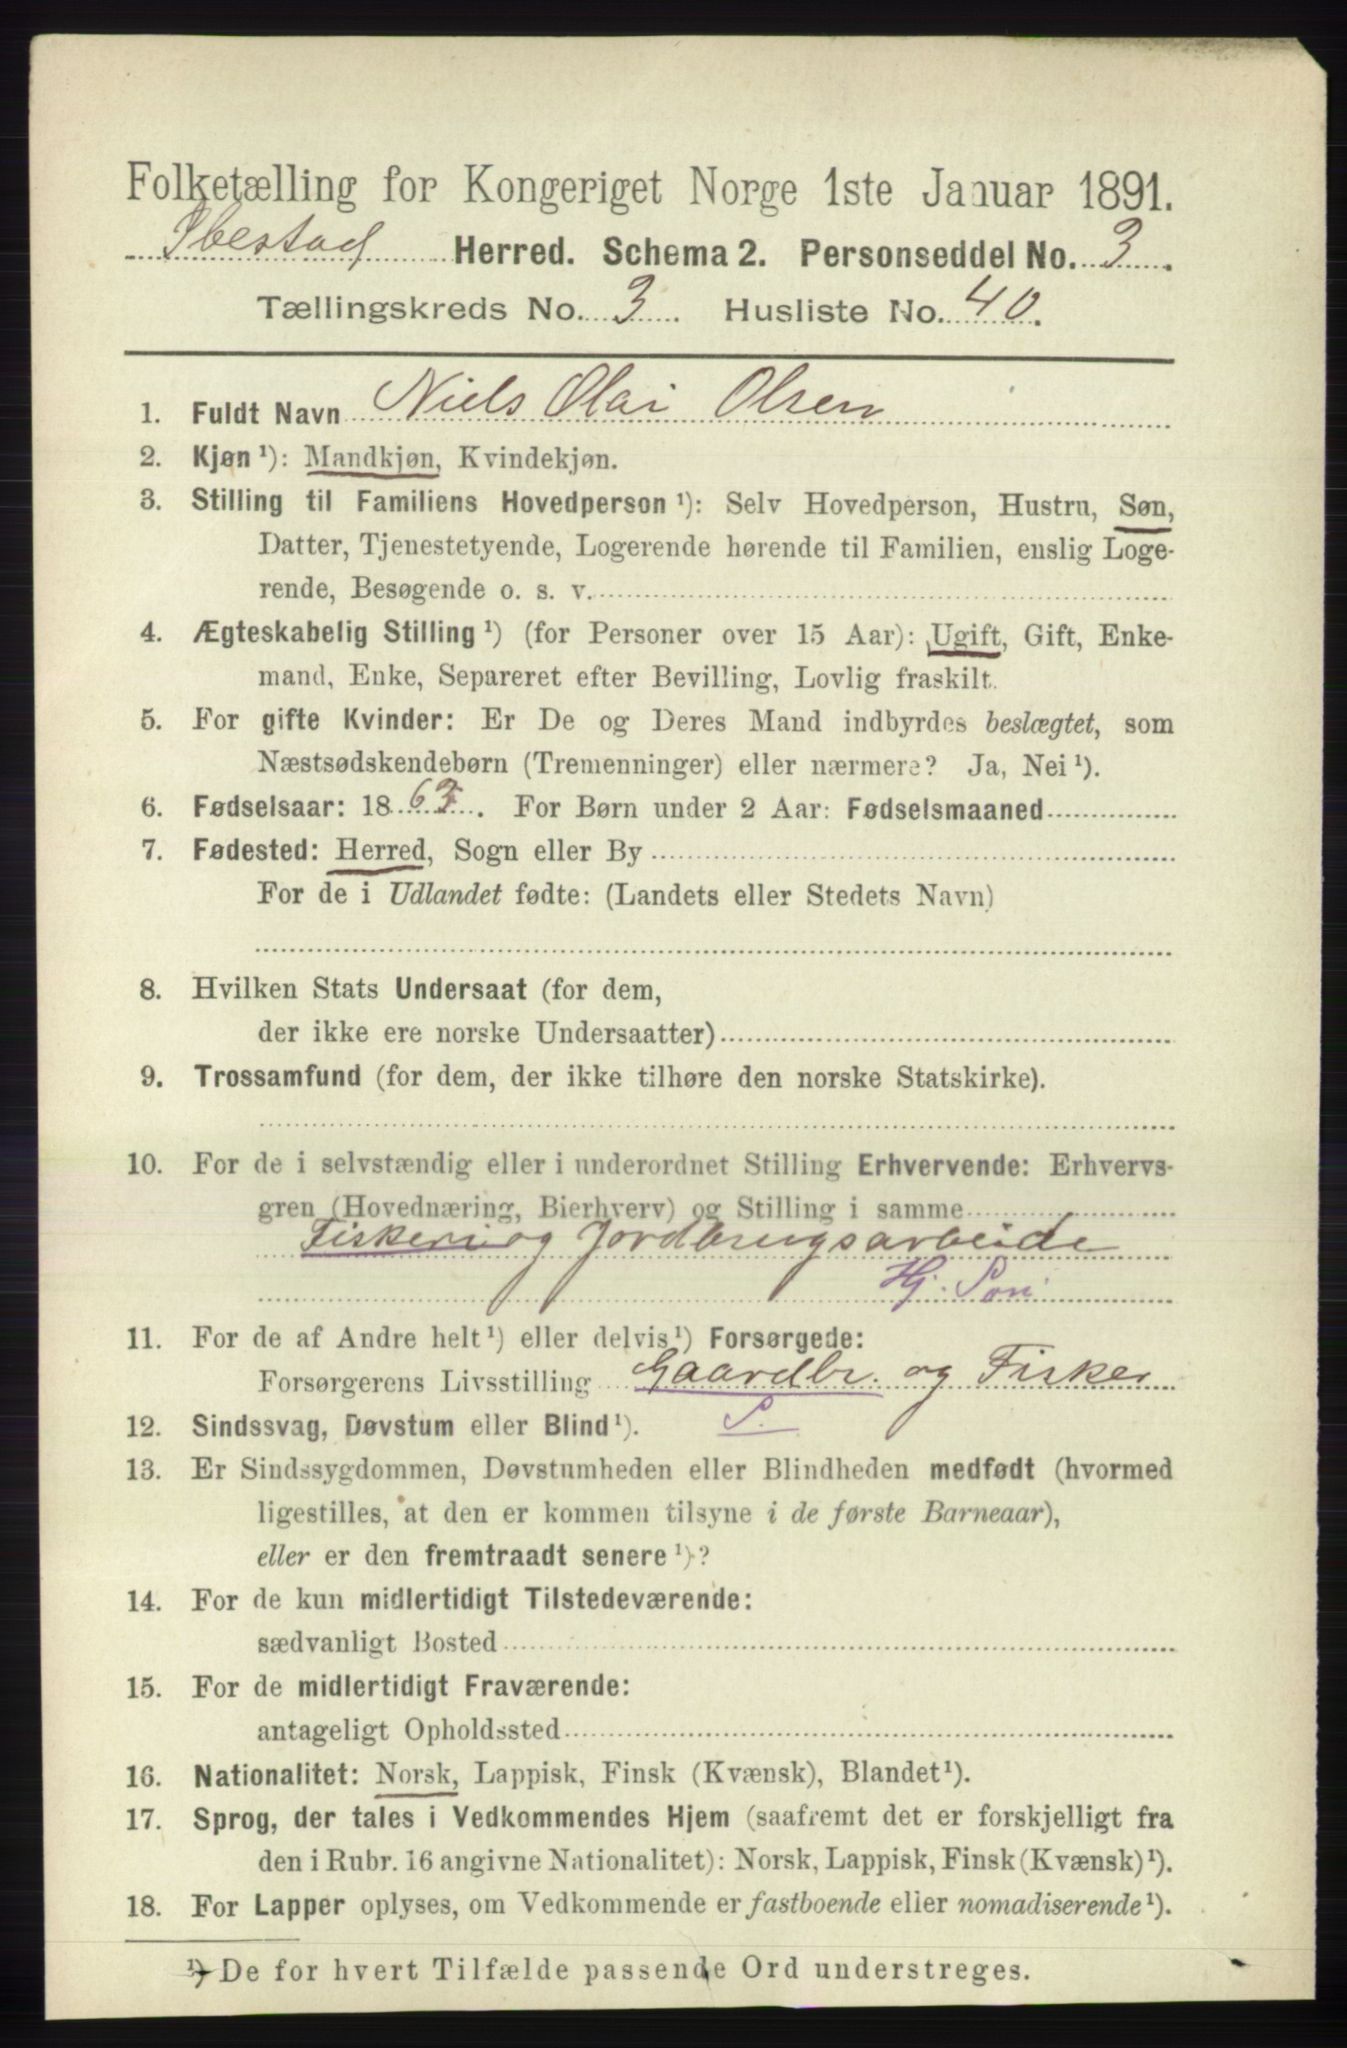 Folketælling for Kongeriget Norge 1ste Januar 1891.
Ibestad Herred. Schema 2. Personseddel No. 3.
Tællingskreds No. 3. Husliste No. 40.
1. Fuldt Navn Niels Olai Olsen
2. Kjøn ¹): Mandkjøn, Kvindekjøn.
3. Stilling til Familiens Hovedperson ¹): Selv Hovedperson, Hustru, Søn,
Datter, Tjenestetyende, Logerende hørende til Familien, enslig Loge-
rende, Besøgende o. s. v.
4. Ægteskabelig Stilling ¹) (for Personer over 15 Aar): Ugift, Gift, Enke-
mand, Enke, Separeret efter Bevilling, Lovlig fraskilt.
5. For gifte Kvinder: Er De og Deres Mand indbyrdes beslægtet, som
Næstsødskendebørn (Tremenninger) eller nærmere? Ja, Nei ¹).
6. Fødselsaar: 18 . For Børn under 2 Aar: Fødselsmaaned
7. Fødested: Herred, Sogn eller By
For de i Udlandet fødte: (Landets eller Stedets Navn)
8. Hvilken Stats Undersaat (for dem,
der ikke ere norske Undersaatter)
9. Trossamfund (for dem, der ikke tilhøre den norske Statskirke).
10. For de i selvstændig eller i underordnet Stilling Erhvervende: Erhvervs-
gren (Hovednæring, Bierhverv) og Stilling i samme
Fiskeri og Jordbrugsarbeide
Hj. Søn
11. For de af Andre helt ¹) eller delvis ¹) Forsørgede:
Forsørgerens Livsstilling Gaardbr. og Fisker
12. Sindssvag, Døvstum eller Blind ¹). S.
13. Er Sindssygdommen, Døvstumheden eller Blindheden medfødt (hvormed
ligestilles, at den er kommen tilsyne i de første Barneaar),
eller er den fremtraadt senere ¹)?
14. For de kun midlertidigt Tilstedeværende:
sædvanligt Bosted
15. For de midlertidigt Fraværende:
antageligt Opholdssted
16. Nationalitet: Norsk, Lappisk, Finsk (Kvænsk), Blandet ¹).
17. Sprog, der tales i Vedkommendes Hjem (saafremt det er forskjelligt fra
den i Rubr. 16 angivne Nationalitet): Norsk, Lappisk, Finsk (Kvænsk) ¹).
18. For Lapper oplyses, om Vedkommende er fastboende eller nomadiserende ¹).
¹) De for hvert Tilfælde passende Ord understreges.